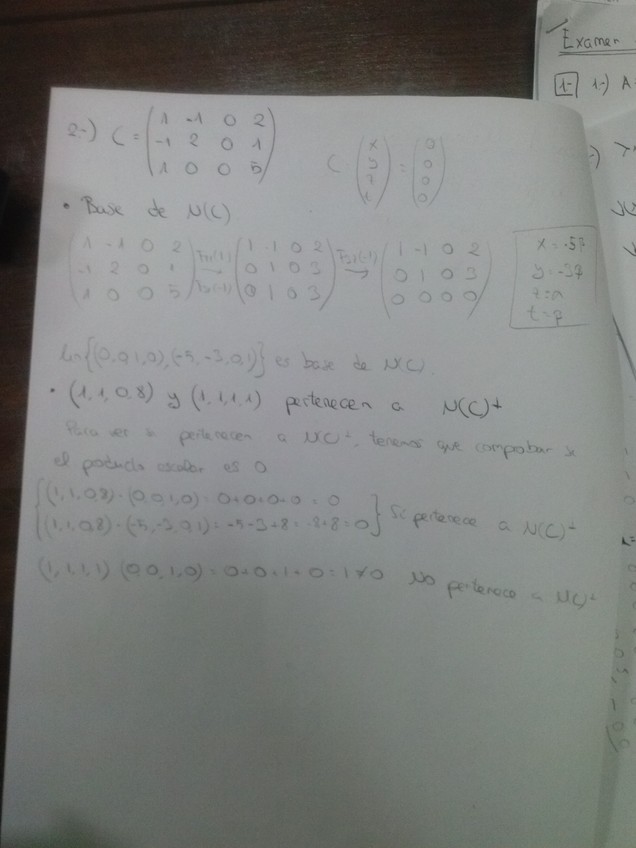 Examen
1-) 1-) A
2-) C = (1 -1 0 2
-1 2 0 1
1 0 0 5)
C (x y z t) = (0 0 0 0)
• Base de N(C)
(1 -1 0 2
-1 2 0 1
1 0 0 5) F21(1) → F31(-1) (1 -1 0 2
0 1 0 3
0 1 0 3) F32(-1) → (1 -1 0 2
0 1 0 3
0 0 0 0)
x = -5
y = -3
z =
t =
{(0,0,1,0),(-5,-3,0,1)} es base de N(C).
• (1,1,0,8) y (1,1,1,1) pertenecen a N(C)⊥
Para ver si pertenecen a N(C)⊥, tenemos que comprobar si
el producto escalar es 0
{(1,1,0,8)·(0,0,1,0) = 0+0+0+0 = 0
{(1,1,0,8)·(-5,-3,0,1) = -5-3+8 = -8+8 = 0} Sí pertenece a N(C)⊥
(1,1,1,1)·(0,0,1,0) = 0+0+1+0 = 1 ≠ 0 No pertenece a N(C)⊥